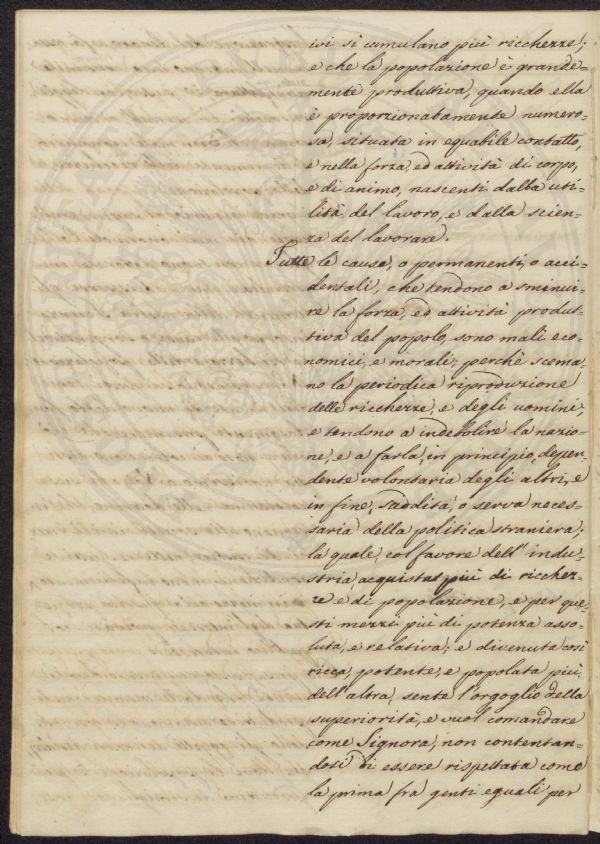 ivi si cumulano più ricchezze;
e che la popolazione è grande=
mente produttiva, quando ella
è proporzionatamente numero=
sa, situata in equabile contatto,
e nella forza, ed attività di corpo,
e di animo, nascenti dalla uti=
lità del lavoro, e dalla scien=
za del lavorare.
Tutte le cause, o permanenti, o acci=
dentali, che tendono a sminui=
re la forza, ed attività produt=
tiva del popolo, sono mali eco=
nomici, e morali; perchè scema=
no la periodica riproduzione
delle ricchezze, e degli uomini;
e tendono a indebolire la nazio=
ne, e a farla, in principio, dipen=
dente volontaria degli altri, e
in fine, suddita, o serva neces=
saria della politica straniera;
la quale, col favore dell' indu=
stria, acquista più di ricchez=
ze e di popolazione, e per que=
sti mezzi più di potenza asso=
luta, e relativa; e divenuta così
ricca, potente, e popolata più
dell'altra, sente l'orgoglio della
superiorità, e vuol comandare
come Signora, non contentan=
dosi di essere rispettata come
la prima fra genti eguali per